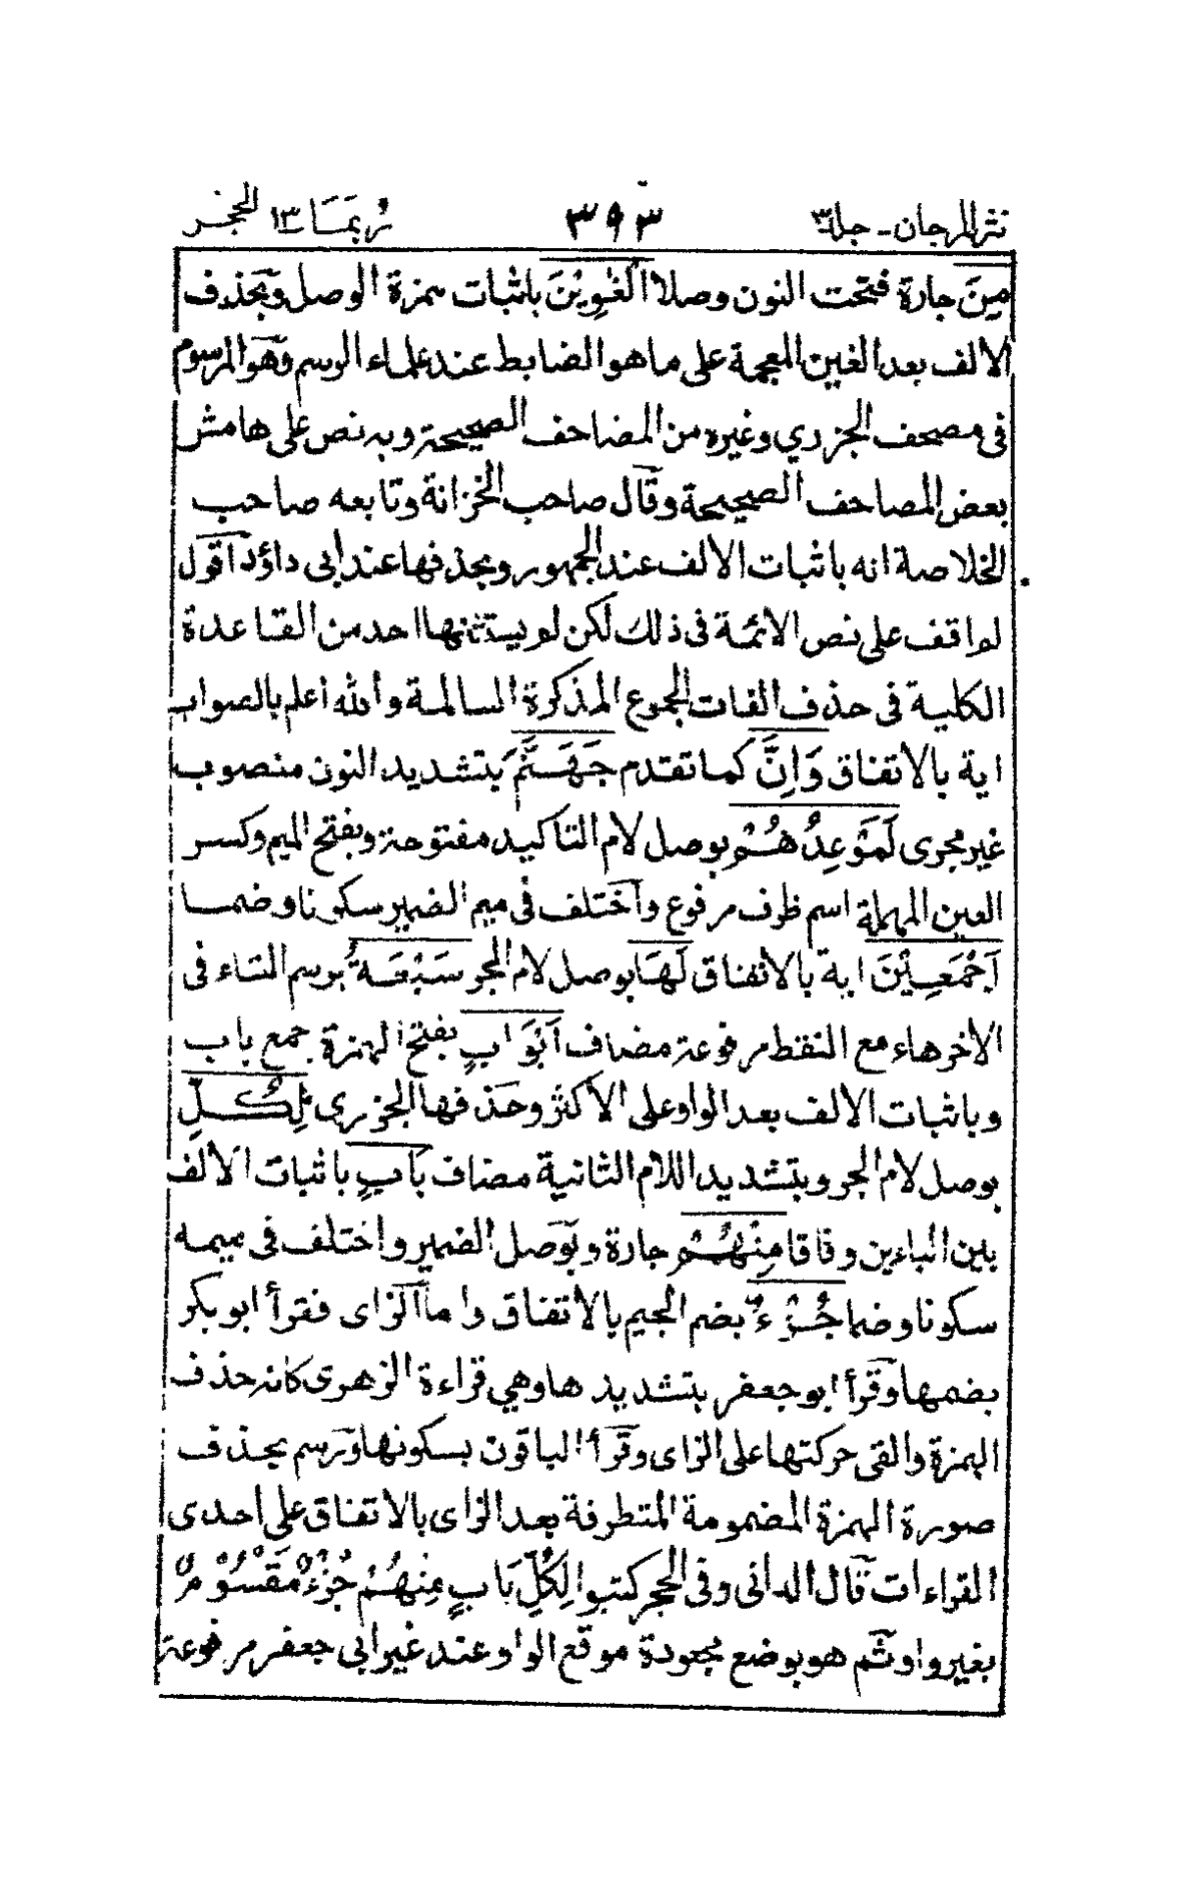 نثر المرجان - جلد ٣ ٣٩٣ ربما ١٣ الحجر
مِنَ جارة فتحت النون وصلا الْغٰوِيْنَ باثبات همزة الوصل وبحذف
الالف بعد الغين المعجمة على ما هو الضابط عند علماء الرسم وهو المرسوم
فى مصحف الجزري وغيره من المصاحف الصحيحة وبه نص على هامش
بعض المصاحف الصحيحة وقال صاحب الخزانة وتابعه صاحب
الخلاصة انه باثبات الالف عند الجمهور وبحذفها عند ابى داؤد اقول
لم اقف على نص الائمة فى ذلك لكن لم يستثنها احد من القاعدة
الكلية فى حذف الفات الجموع المذكرة السالمة والله اعلم بالصواب
اية بالاتفاق وَاِنَّ كما تقدم جَهَنَّمَ بتشديد النون منصوب
غير مجرى لَمَوْعِدُهُمْ بوصل لام التاكيد مفتوحة وبفتح الميم وكسر
العين المهملة اسم ظرف مرفوع واختلف فى ميم الضمير سكونا وضما
اَجْمَعِيْنَ اية بالاتفاق لَهَا بوصل لام الجر سَبْعَةُ برسم التاء فى
الاخر هاء مع النقط مرفوعة مضاف اَبْوَابٍ بفتح الهمزة جمع باب
وباثبات الالف بعد الواو على الاكثر وحذفها الجزرى لِكُلِّ
بوصل لام الجر وبتشديد اللام الثانية مضاف بَابٍ باثبات الالف
بين الباءين وفاقا مِنْهُمْ جارة وبوصل الضمير واختلف فى ميمه
سكونا وضما جُزْءٌ بضم الجيم بالاتفاق واما الزاى فقرأ ابو بكر
بضمها وقرأ ابو جعفر بتشديدها وهي قراءة الزهرى كانه حذف
الهمزة والقى حركتها على الزاى وقرأ الباقون بسكونها ورسم بحذف
صورة الهمزة المضمومة المتطرفة بعد الزاى بالاتفاق على احدى
القراءات قال الدانى وفى الحجر كتبوا لِكُلِّ بَابٍ مِنْهُمْ جُزْءٌ مَقْسُوْمٌ
بغير واو ثم هو بوضع مجعودة موقع الواو عند غير ابى جعفر مرفوعة